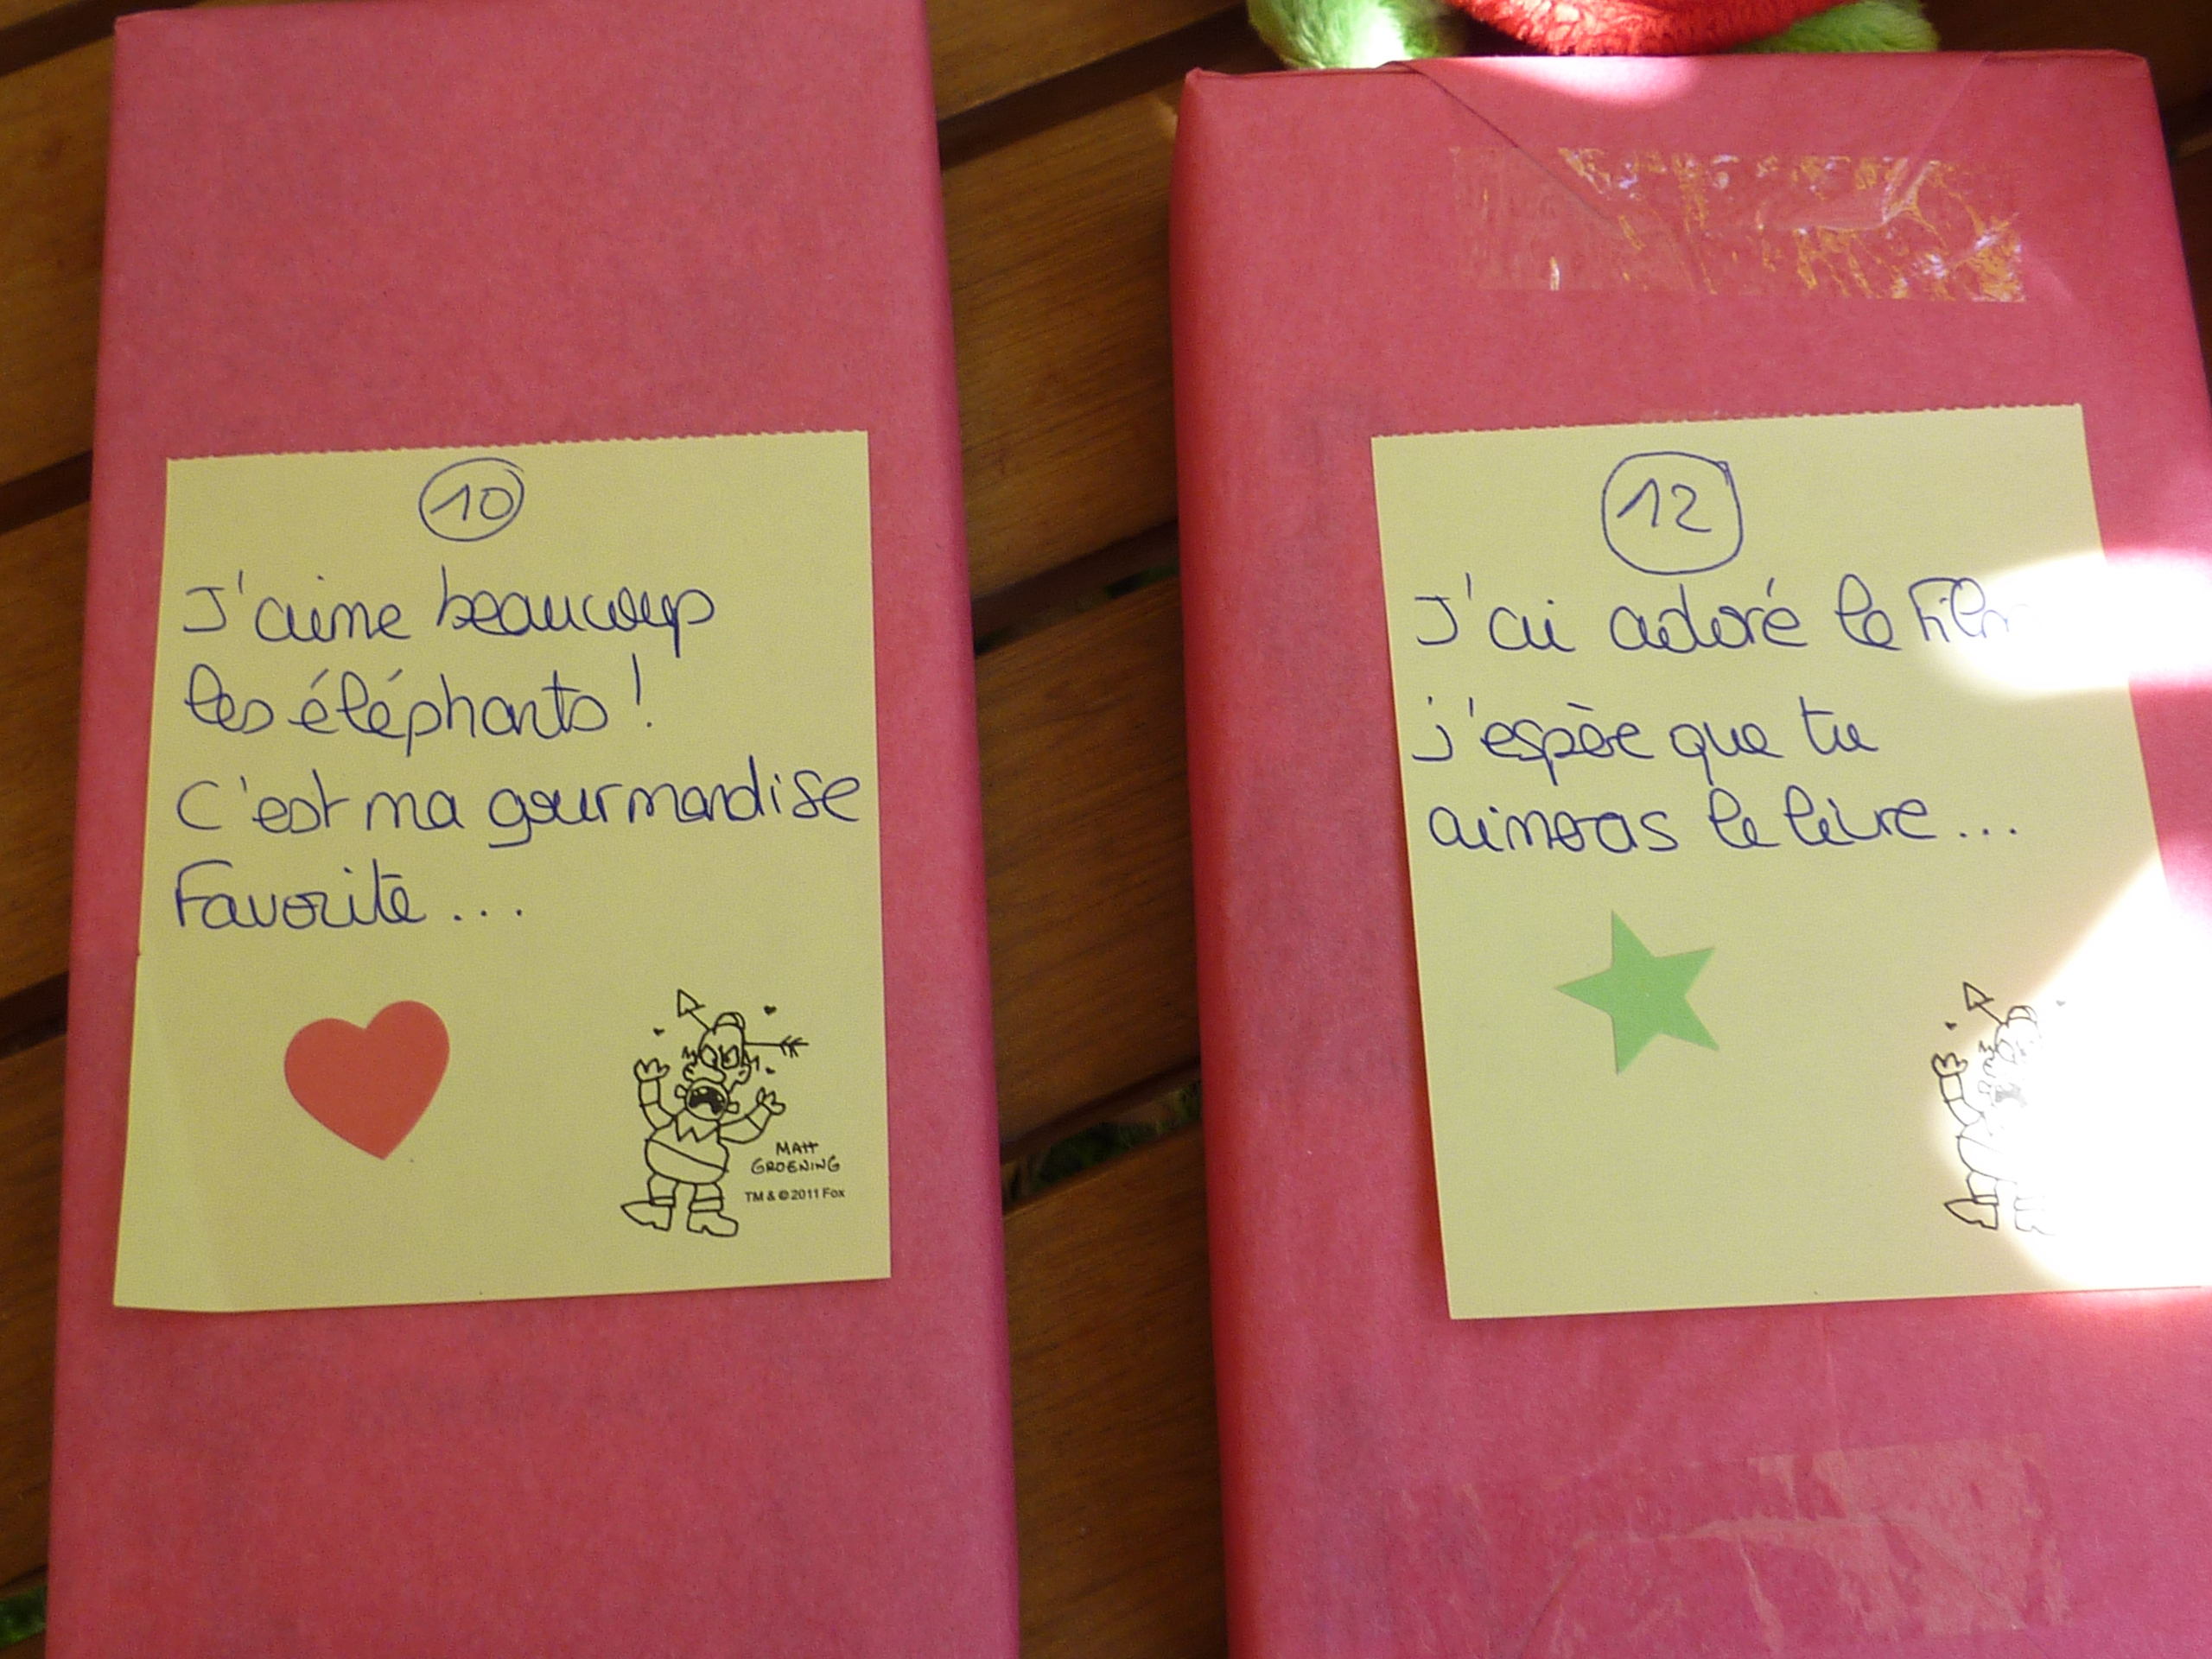 10
J'aime beaucoup
les éléphants !
C'est ma gourmandise
Favorite...
MATT
GROENING
TM & © 2011 Fox
12
J'ai adoré le Film
j'espère que tu
aimeras le livre...